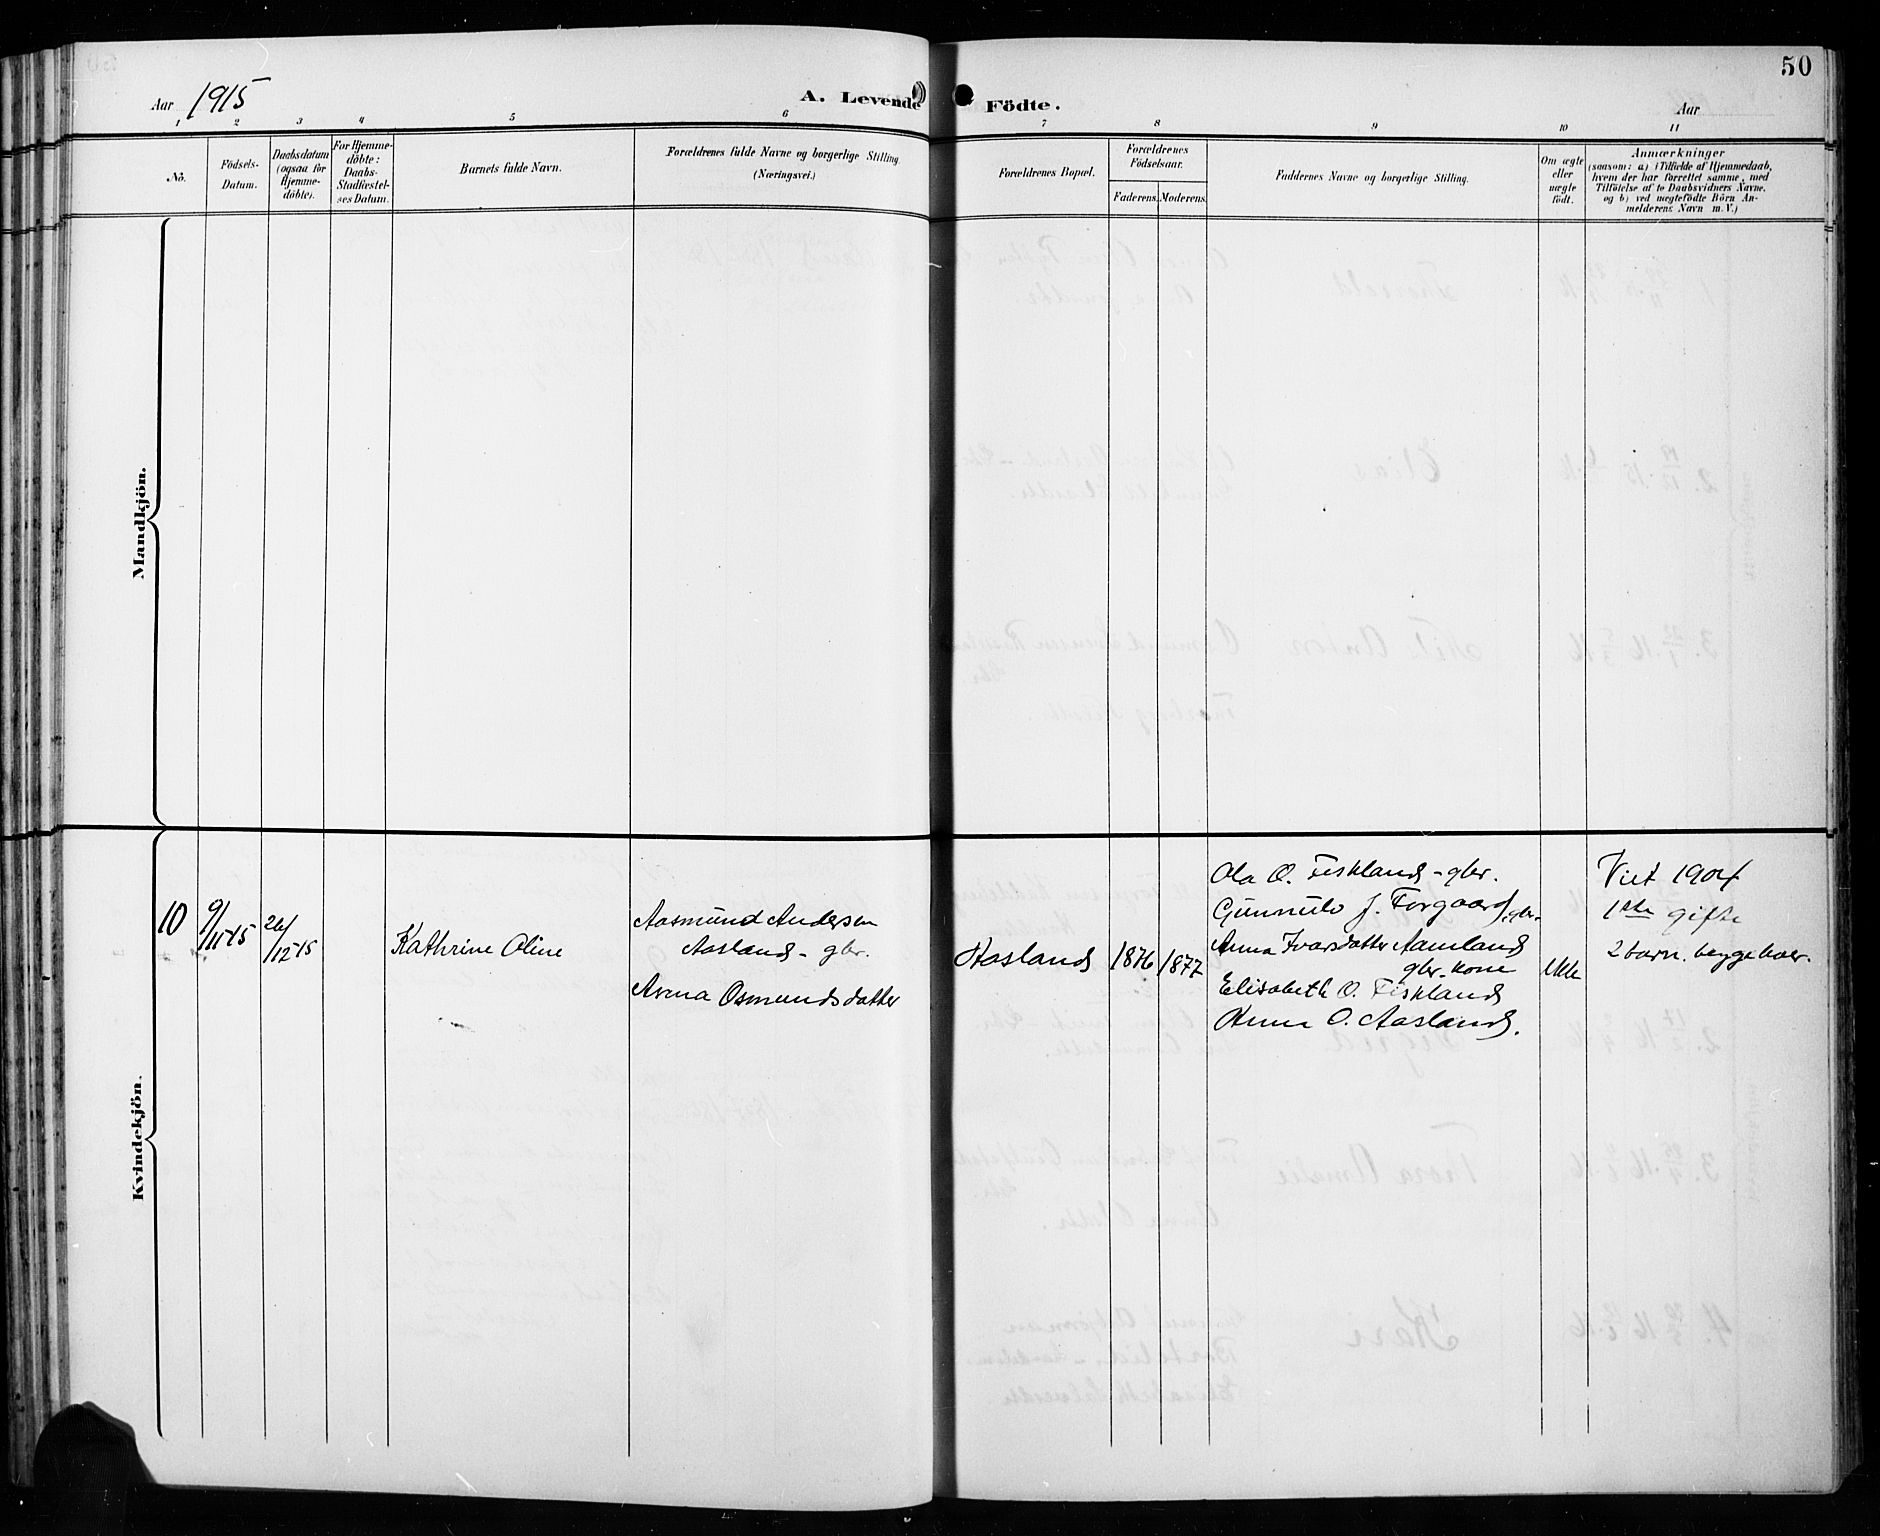 50
Aar 1915
A. Levende Födte.
Aar
1 2 3 4 5 6 7 8 9 10 11
No.
Födsels-
Datum.
Daabsdatum
(ogsaa for
Hjemme-
döbte).
For Hjemme-
döbte:
Daabs-
Stadfæstel-
ses Datum.
Barnets fulde Navn.
Forældrenes fulde Navne og borgerlige Stilling.
(Næringsvei.)
Forældrenes Bopæl.
Forældrenes
Födselsaar.
Faderens.
Moderens.
Faddernes Navne og borgerlige Stilling.
Om ægte
eller
uægte
födt.
Anmærkninger
(saasom: a) i Tilfælde af Hjemmedaab,
hvem der har forrettet samme, med
Tilföielse af to Daabsvidners Navne,
og b) ved uægtefödte Börn An-
melderens Navn m. V.)
Mandkjön.
Kvindekjön.
10
9/11 15
26/12 15
Kathrine Oline
Aasmund Andersen
Aasland - gbr.
Anna Osmundsdatter
Aasland
1876
1877
Ola O. Fiskland - gbr.
Gunnulv J. Forgaard, gbr.
Anna Ivarsdatter Aamland
gbr. kone
Elisabeth O. Fiskland
Anna O. Aasland.
ekte
Viet 1904
1ste gifte
2 barn. begge lever.